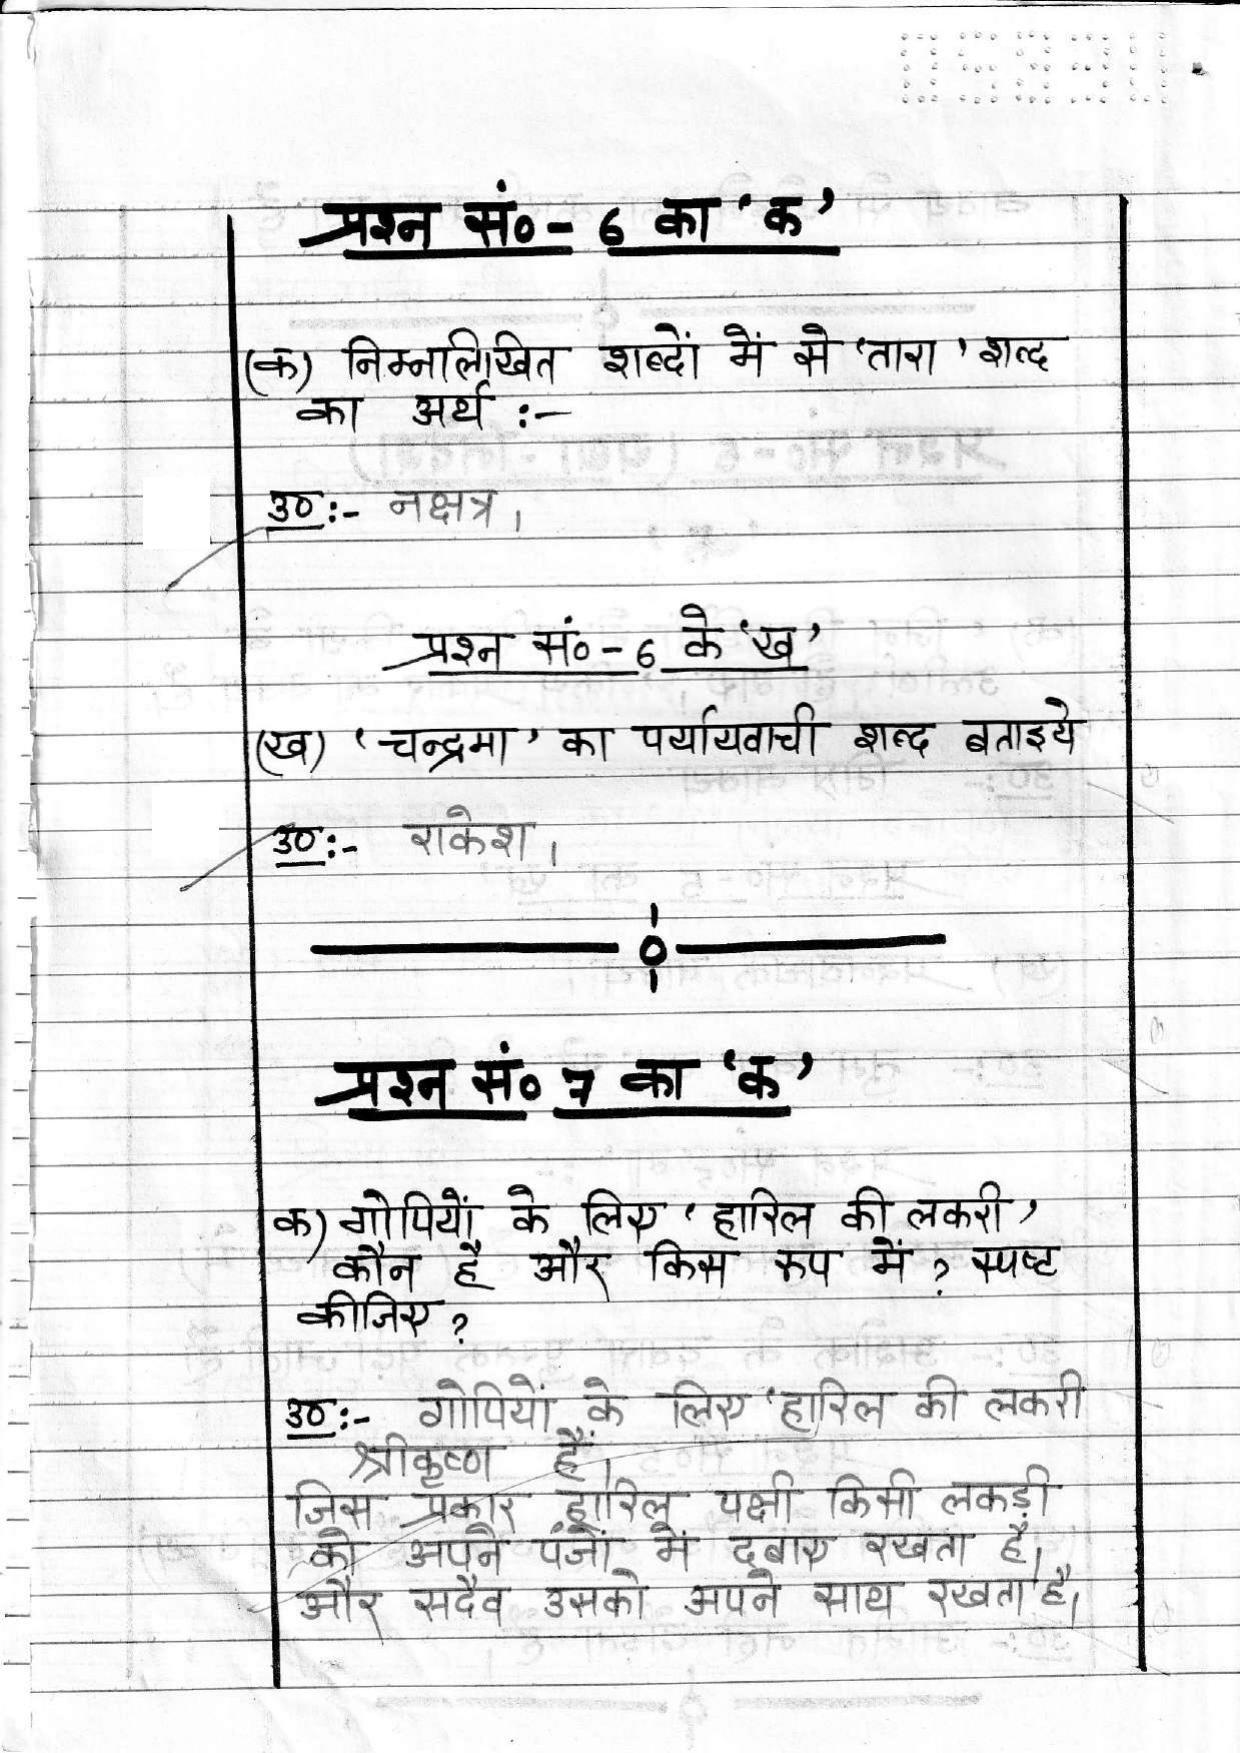 प्रश्न सं० - 6 का 'क'
(क) निम्नलिखित शब्दों में से 'तारा' शब्द
का अर्थ :-
उ० :- नक्षत्र।
प्रश्न सं० - 6 के 'ख'
(ख) 'चन्द्रमा' का पर्यायवाची शब्द बताइये
उ० :- राकेश।
प्रश्न सं० 7 का 'क'
क) गोपियों के लिए 'हारिल की लकरी'
कौन है और किस रूप में? स्पष्ट
कीजिए?
उ० :- गोपियों के लिए 'हारिल की लकरी
श्रीकृष्ण हैं।
जिस प्रकार हारिल पक्षी किसी लकड़ी
को अपने पंजों में दबाए रखता है,
और सदैव उसको अपने साथ रखता है।